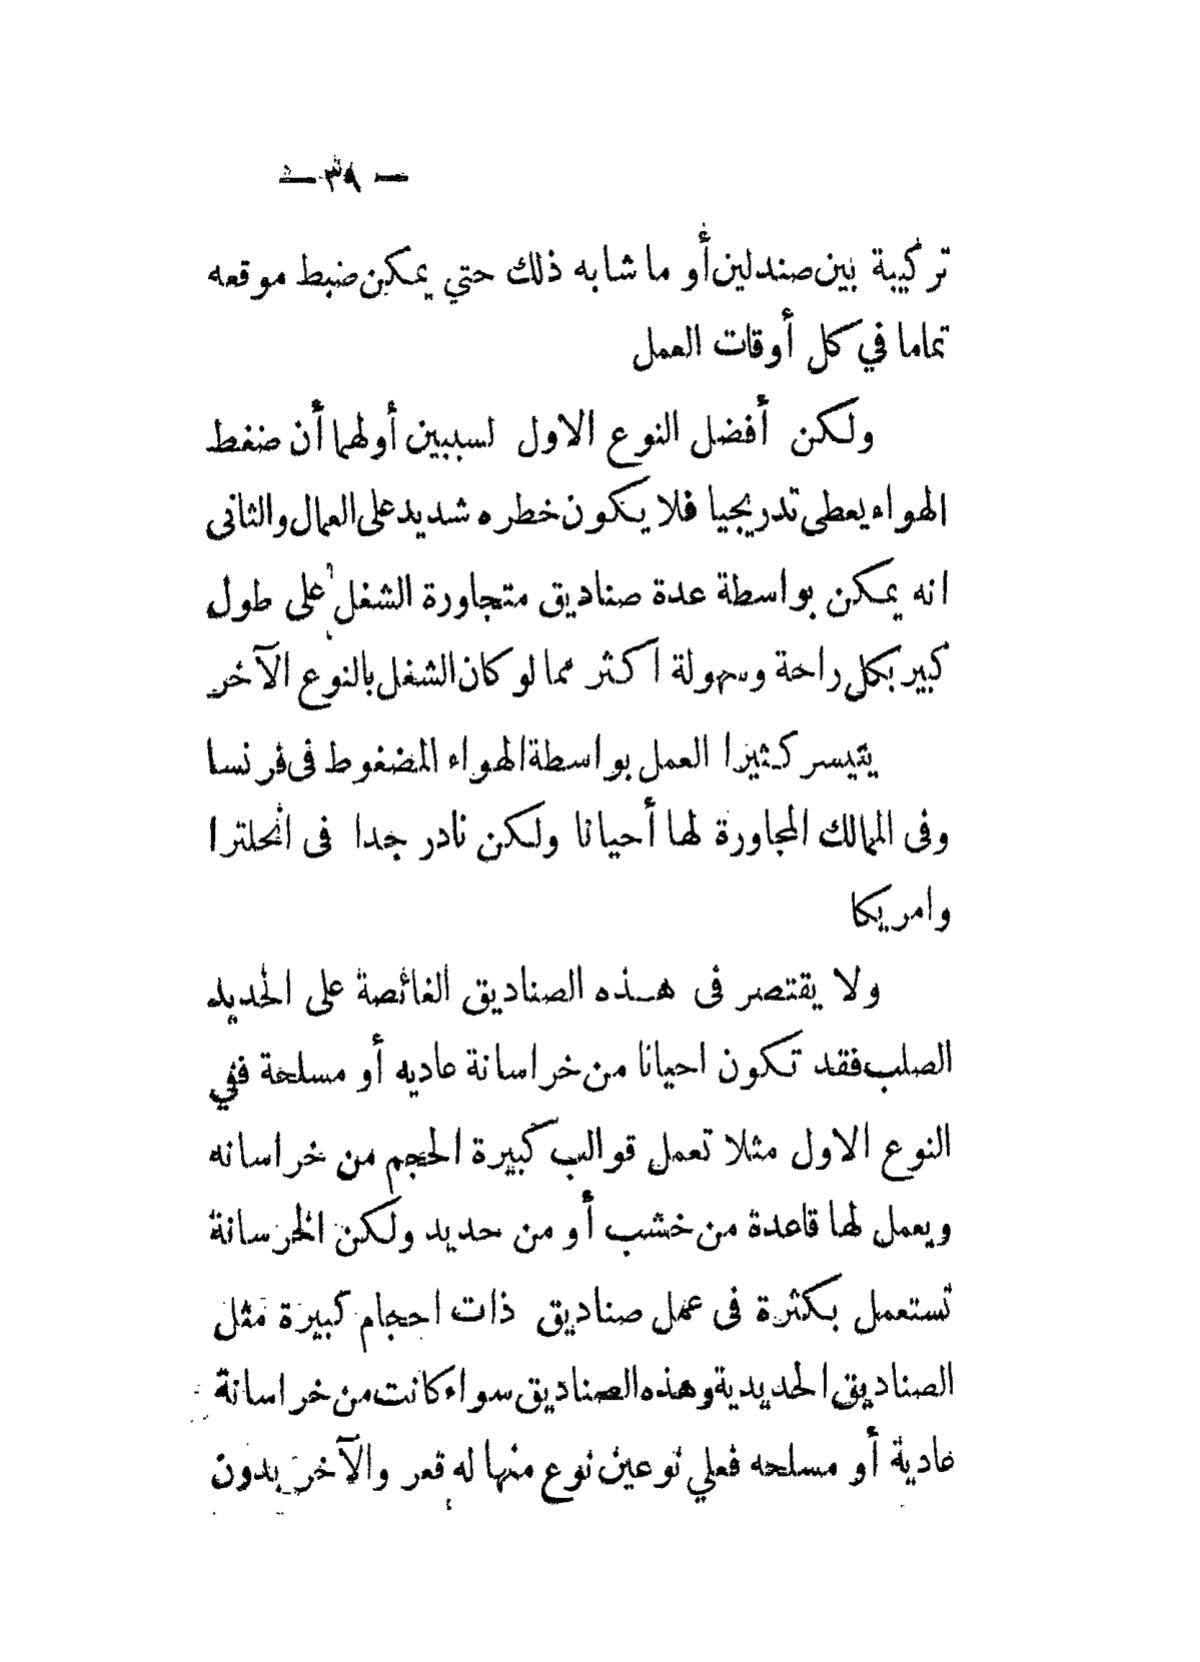 — ٣٩ —
تركيبة بين صندلين أو ما شابه ذلك حتي يمكن ضبط موقعه
تماما في كل أوقات العمل
ولكن أفضل النوع الاول لسببين أولهما أن ضغط
الهواء يعطى تدريجيا فلا يكون خطره شديد على العمال والثانى
انه يمكن بواسطة عدة صناديق متجاورة الشغل على طول
كبير بكل راحة وسهولة اكثر مما لو كان الشغل بالنوع الآخر
يتيسر كثيرا العمل بواسطة الهواء المضغوط فى فرنسا
وفى الممالك المجاورة لها أحيانا ولكن نادر جدا فى انجلترا
وامريكا
ولا يقتصر فى هذه الصناديق الغائصة على الحديد
الصلب فقد تكون احيانا من خراسانة عاديه أو مسلحة ففي
النوع الاول مثلا تعمل قوالب كبيرة الحجم من خراسانه
ويعمل لها قاعدة من خشب أو من حديد ولكن الخرسانة
تستعمل بكثرة فى عمل صناديق ذات احجام كبيرة مثل
الصناديق الحديدية وهذه الصناديق سواء كانت من خراسانة
عادية أو مسلحه فعلي نوعين نوع منها له قعر والآخر بدون